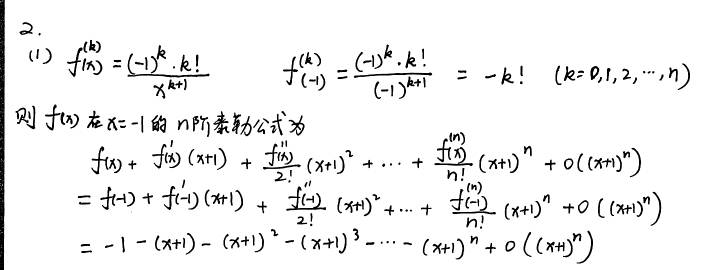 2.
(1) f^{(k)}(x) = \frac{(-1)^k · k!}{x^{k+1}}    f^{(k)}(-1) = \frac{(-1)^k · k!}{(-1)^{k+1}} = -k! (k=0,1,2,…,n)
则 f(x) 在 x=-1 的 n阶泰勒公式为
f(x) + f'(x)(x+1) + \frac{f''(x)}{2!}(x+1)^2 + … + \frac{f^{(n)}(x)}{n!}(x+1)^n + o((x+1)^n)
= f(-1) + f'(-1)(x+1) + \frac{f''(-1)}{2!}(x+1)^2 + … + \frac{f^{(n)}(-1)}{n!}(x+1)^n + o((x+1)^n)
= -1 - (x+1) - (x+1)^2 - (x+1)^3 - … - (x+1)^n + o((x+1)^n)